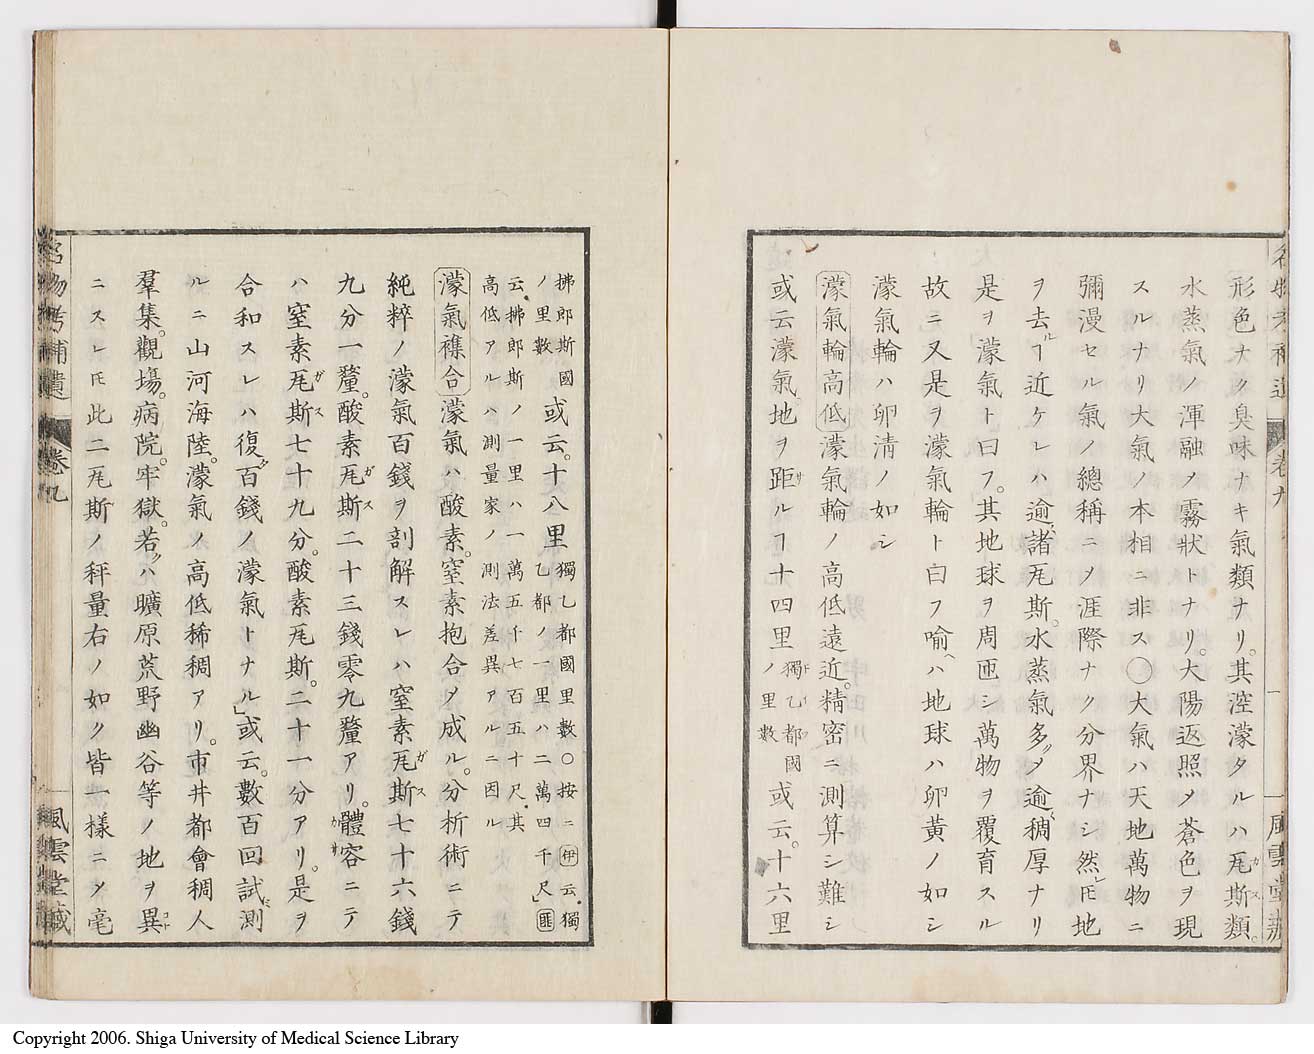 形色ナク臭味ナキ氣類ナリ。其涳濛タルハ瓦斯類。
水蒸氣ノ渾融ノ霧狀トナリ。大陽返照〆蒼色ヲ現
スルナリ大氣ノ本相ニ非ス〇大氣ハ天地萬物ニ
彌漫セル氣ノ總稱ニ〆涯際ナク分界ナシ然𪜈地
ヲ去ルヿ近ケレハ逾諸瓦斯。水蒸氣多〆逾稠厚ナリ
是ヲ濛氣ト曰フ。其地球ヲ周匝シ萬物ヲ覆育スル
故ニ又是ヲ濛氣輪ト白フ喻ヘハ地球ハ卵黃ノ如シ
濛氣輪ハ卵清ノ如シ
濛氣輪高低濛氣輪ノ高低遠近。精密ニ測算シ難シ
或云濛氣。地ヲ距ルヿ十四里獨乙都國ノ里數或云。十六里
拂郎斯國ノ里數或云。十八里獨乙都國里數〇按ニ伊云獨乙都ノ一里ハ二萬四千尺」匪
云拂郎斯ノ一里ハ一萬五千七百五十尺其
高低アルハ測量家ノ測法差異アルニ因ル
濛氣襍合濛氣ハ酸素。窒素抱合〆成ル。分析術ニテ
純粹ノ濛氣百錢ヲ剖解スレハ窒素瓦斯七十六錢
九分一釐。酸素瓦斯二十三錢零九釐アリ。體容ニテ
ハ窒素瓦斯七十九分。酸素瓦斯。二十一分アリ。是ヲ
合和スレハ復百錢ノ濛氣トナル」或云。數百回試測
ルニ山河海陸。濛氣ノ高低稀稠アリ。市井都會稠人
羣集。觀場。病院。牢獄。若ハ曠原荒野幽谷等ノ地ヲ異
ニスレ𪜈此二瓦斯ノ秤量右ノ如ク皆一樣ニ〆毫
名物考補遺
卷九
一
風雲堂藏
名物考補遺
卷九
風雲堂藏
Copyright 2006. Shiga University of Medical Science Library